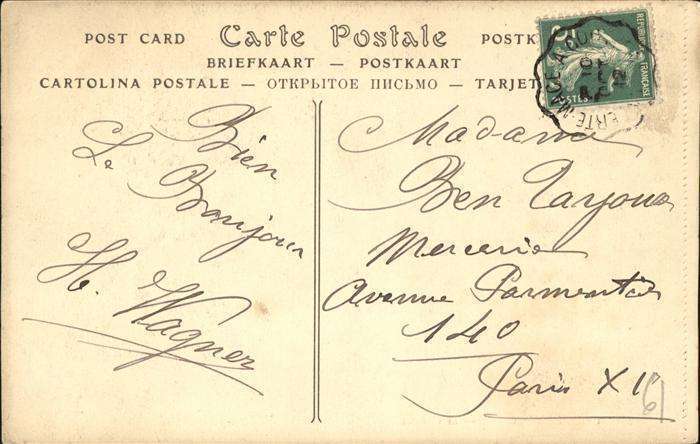 POST CARD Carte Postale POSTK
BRIEFKAART — POSTKAART
CARTOLINA POSTALE — ОТКРЫТОЕ ПИСЬМО — TARJET
Bien
Le Bonjour
H. Wagner
Madame
Ben
Mercerie
Avenue Parmentier
140
Paris XIe
REPUBLIQUE FRANÇAISE
POSTES